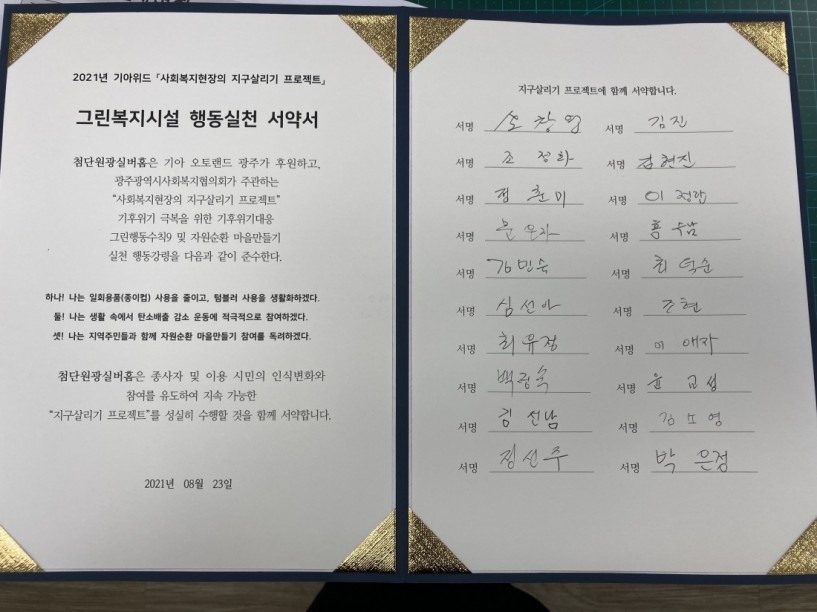 2021년 기아위드 「사회복지현장의 지구살리기 프로젝트」
그린복지시설 행동실천 서약서
첨단원광실버홈은 기아 오토랜드 광주가 후원하고,
광주광역시사회복지협의회가 주관하는
“사회복지현장의 지구살리기 프로젝트”
기후위기 극복을 위한 기후위기대응
그린행동수칙9 및 자원순환 마을만들기
실천 행동강령을 다음과 같이 준수한다.
하나! 나는 일회용품(종이컵) 사용을 줄이고, 텀블러 사용을 생활화하겠다.
둘! 나는 생활 속에서 탄소배출 감소 운동에 적극적으로 참여하겠다.
셋! 나는 지역주민들과 함께 자원순환 마을만들기 참여를 독려하겠다.
첨단원광실버홈은 종사자 및 이용 시민의 인식변화와
참여를 유도하여 지속 가능한
“지구살리기 프로젝트”를 성실히 수행할 것을 함께 서약합니다.
2021년 08월 23일
지구살리기 프로젝트에 함께 서약합니다.
서명 서명 김진
서명 조정화 서명 김현진
서명 정춘미 서명 이정란
서명 서명 홍수남
서명 김민숙 서명 최덕순
서명 심선아 서명 조현
서명 최유정 서명 이애자
서명 백광숙 서명 윤교섭
서명 김선남 서명 김소영
서명 정선주 서명 박은정